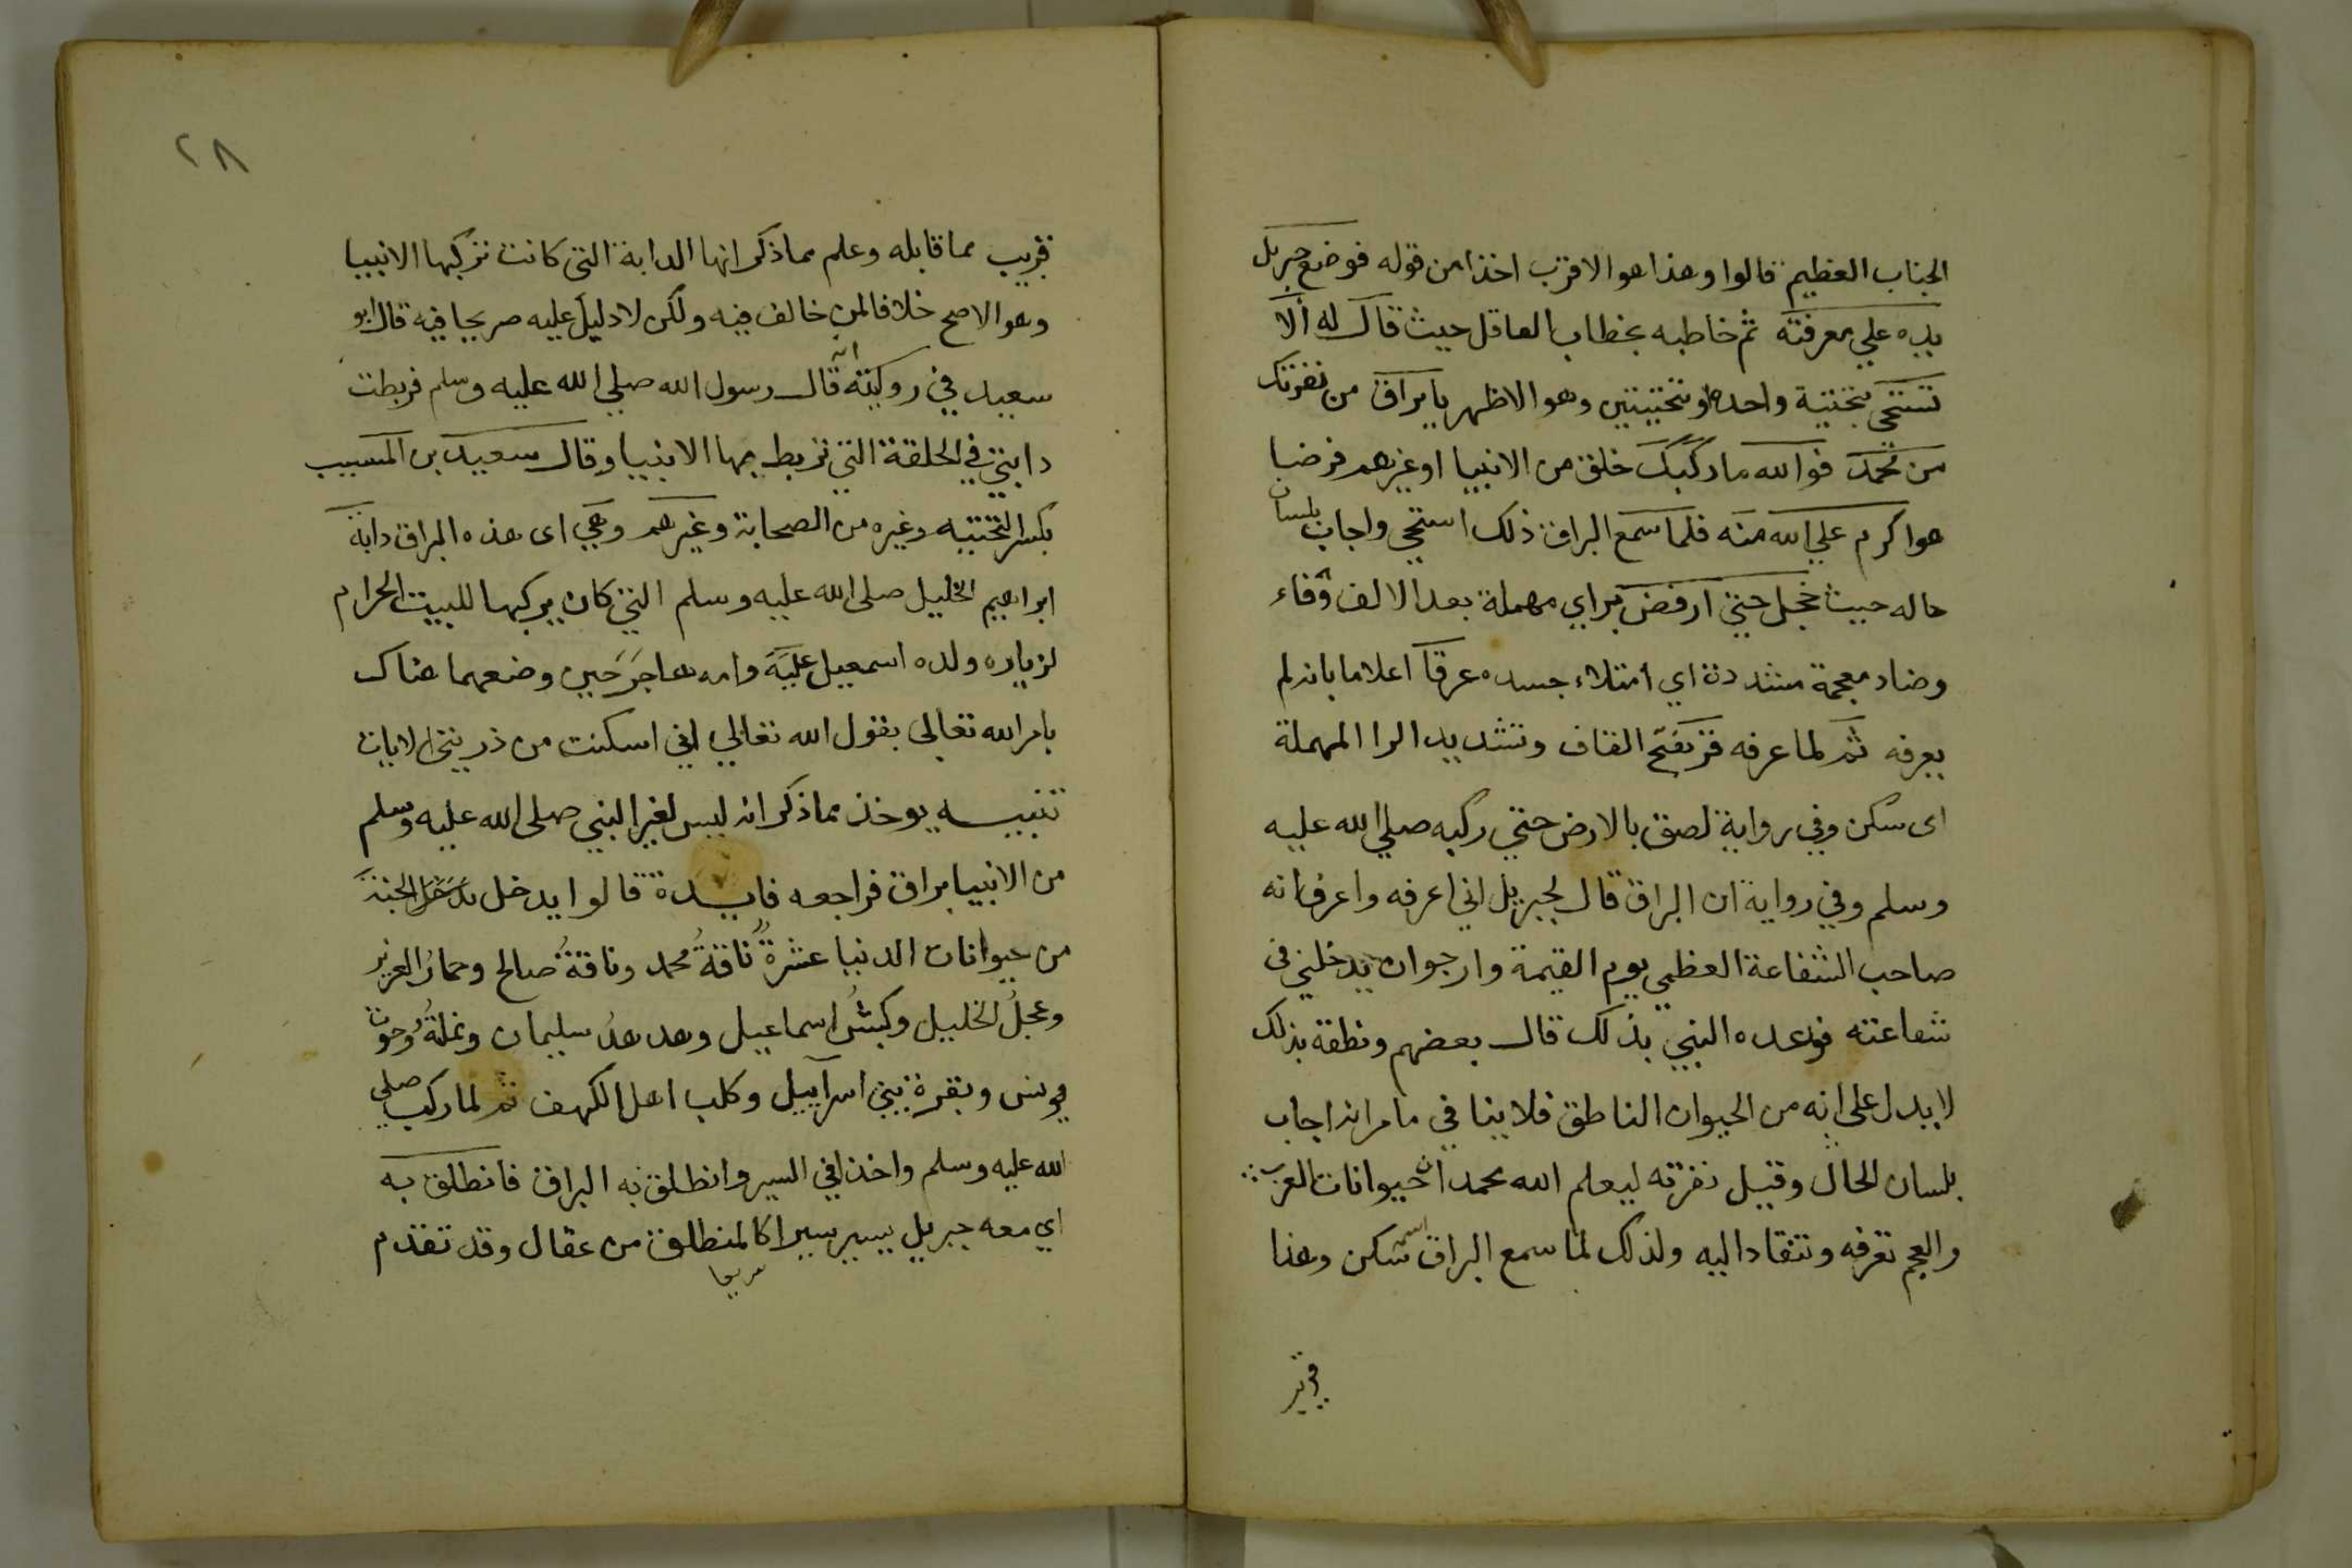 الجناب العظيم قالوا وهذا هو الاقرب اخذا من قوله فوضع جبريل
يده علي معرفته ثم خاطبه بخطاب العاقل حيث قال له ألا
تستحى بتحتية واحده او بتحتيتين وهو الاظهر يا براق من نفرتك
من محمد فوالله ما ركبك خلق من الانبيا او غيرهم فرضا
هو اكرم علي الله منه فلما سمع البراق ذلك استحي واجاب بلسان
حاله حيث خجل حتي ارفض براي مهملة بعد الالف وفاء
وضاد معجمة مشددة اي امتلاء جسده عرقا اعلاما بانه لم
يعرفه ثم لما عرفه قر بفتح القاف وتشديد الرا المهملة
اى سكن وفي رواية لصق بالارض حتي ركبه صلي الله عليه
وسلم وفي رواية ان البراق قال لجبريل اني اعرفه واعرف انه
صاحب الشفاعة العظمي يوم القيمة وارجو ان يدخلني فى
شفاعته فوعده النبي بذلك قال بعضهم ونطقه بذلك
لا يدل على انه من الحيوان الناطق فلا ينا في ما مر انه اجاب
بلسان الحال وقيل نفرته ليعلم الله محمد ان حيوانات العرب
والعجم تعرفه وتنقاد اليه ولذلك لما سمع البراق اسمه سكن وهذا
قريب
٢٨
قريب مما قابله وعلم مما ذكر انها الدابة التى كانت تركبها الانبيا
وهو الاصح خلافا لمن خالف فيه ولكن لا دليل عليه صريحا فيه قال ابو
سعيد في روايته انه قال رسول الله صلي الله عليه وسلم فربطت
دابتي في الحلقة التي تربط بها الانبيا وقال سعيد بن المسيب
بكسر التحتيه وغيره من الصحابة وغيرهم وهي اى هذه البراق دابة
ابراهيم الخليل صلى الله عليه وسلم التي كان يركبها للبيت الحرام
لزياره ولده اسمعيل عليه وامه هاجر حين وضعهما هناك
بامر الله تعالى بقول الله تعالي اني اسكنت من ذريتي الايات
تنبيه يوخذ مما ذكر انه ليس لغير النبي صلى الله عليه وسلم
من الانبيا براق فراجعه فايدة قالوا يدخل الجنة
من حيوانات الدنيا عشرة ناقة محمد وناقة صالح وحمار العزير
وعجل الخليل وكبش اسماعيل وهدهد سليمان ونملة وحوت
يونس وبقرة بني اسراييل وكلب اهل الكهف ثم لما ركب صلي
الله عليه وسلم واخذ في السير وانطلق به البراق فانطلق به
اي معه جبريل يسير سيرا كالمنطلق من عقال وقد تقدم
سريعا